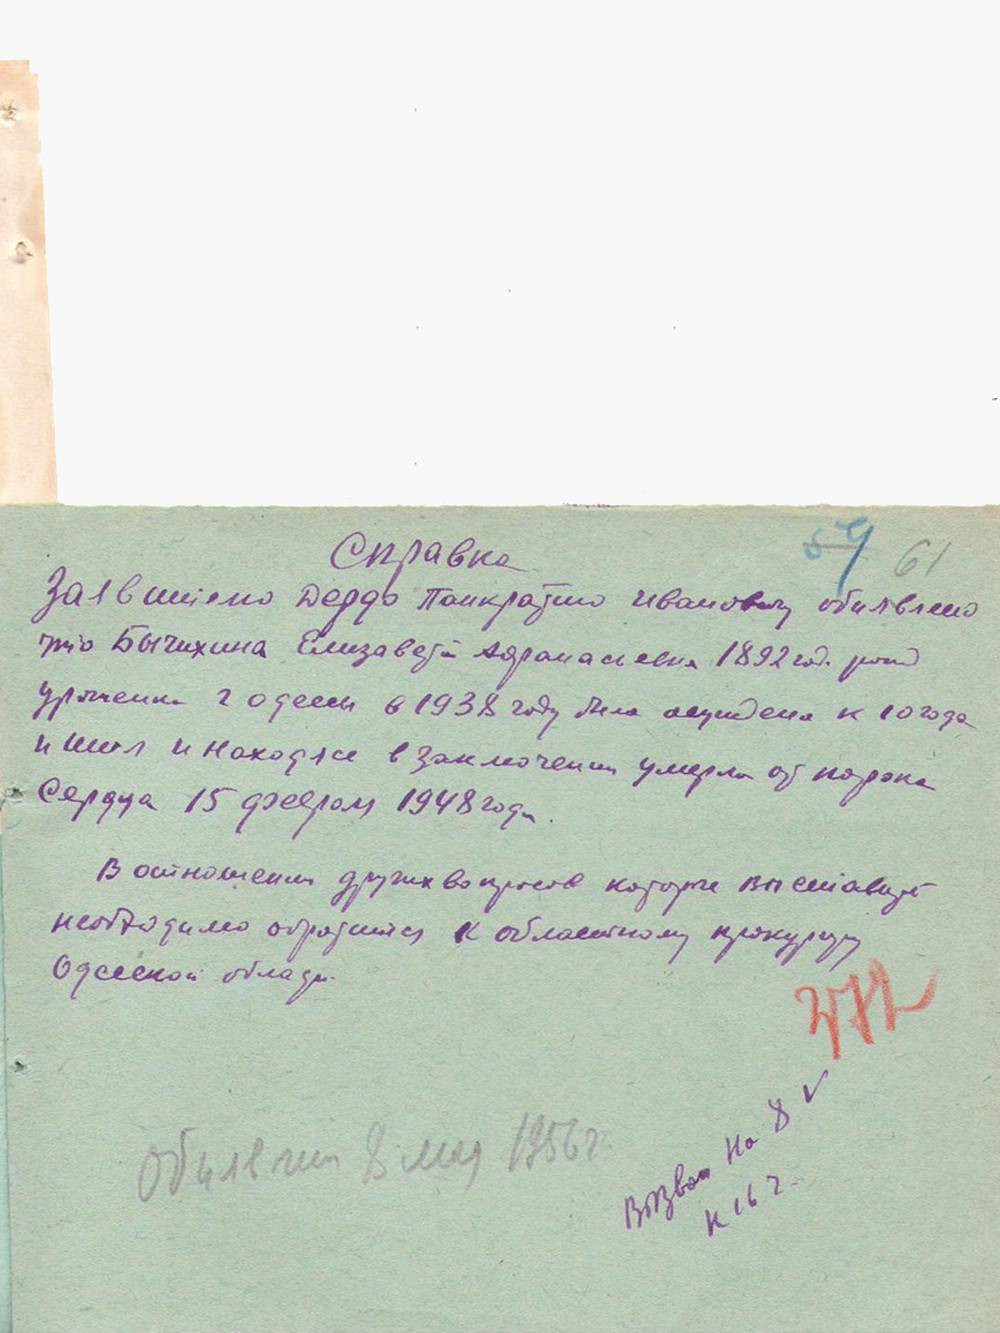 Справка 59 61
Заявителю Дердо Панкратию Ивановичу обиявлено
что Бычихина Елизавета Афанасьевна 1892 год. рожд
уроженка г Одессы в 1938 году была осуждена к 10 года
и находясь в заключении умерла от порока
Сердца 15 февраля 1948 года.
В отношении других вопросов которые выставил
необходимо обратится к областному прокурору
Одесской области.
Вызван на 8 V
к 16 г.
Обиявлен 8 мая 1956 г.